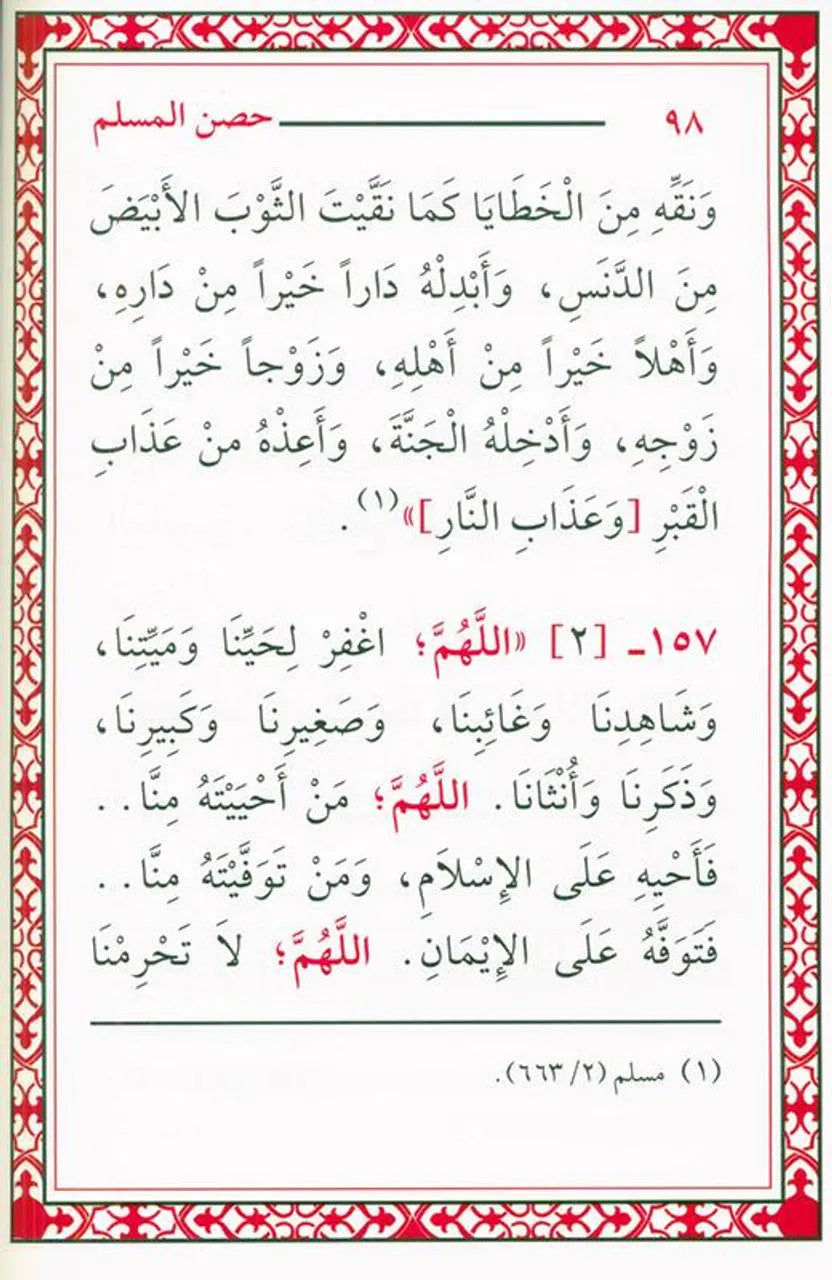 ٩٨ حصن المسلم
وَنَقِّهِ مِنَ الْخَطَايَا كَمَا نَقَّيْتَ الثَّوْبَ الأَبْيَضَ
مِنَ الدَّنَسِ، وَأَبْدِلْهُ دَاراً خَيْراً مِنْ دَارِهِ،
وَأَهْلاً خَيْراً مِنْ أَهْلِهِ، وَزَوْجاً خَيْراً مِنْ
زَوْجِهِ، وَأَدْخِلْهُ الْجَنَّةَ، وَأَعِذْهُ منْ عَذَابِ
الْقَبْرِ [وَعَذَابِ النَّارِ]»(١).
١٥٧ـ [٢] «اللَّهُمَّ؛ اغْفِرْ لِحَيِّنَا وَمَيِّتِنَا،
وَشَاهِدِنَا وَغَائِبِنَا، وَصَغِيرِنَا وَكَبِيرِنَا،
وَذَكَرِنَا وَأُنْثَانَا. اللَّهُمَّ؛ مَنْ أَحْيَيْتَهُ مِنَّا..
فَأَحْيِهِ عَلَى الإِسْلَامِ، وَمَنْ تَوَفَّيْتَهُ مِنَّا..
فَتَوَفَّهُ عَلَى الإِيْمَانِ. اللَّهُمَّ؛ لاَ تَحْرِمْنَا
(١) مسلم (٦٦٣/٢).